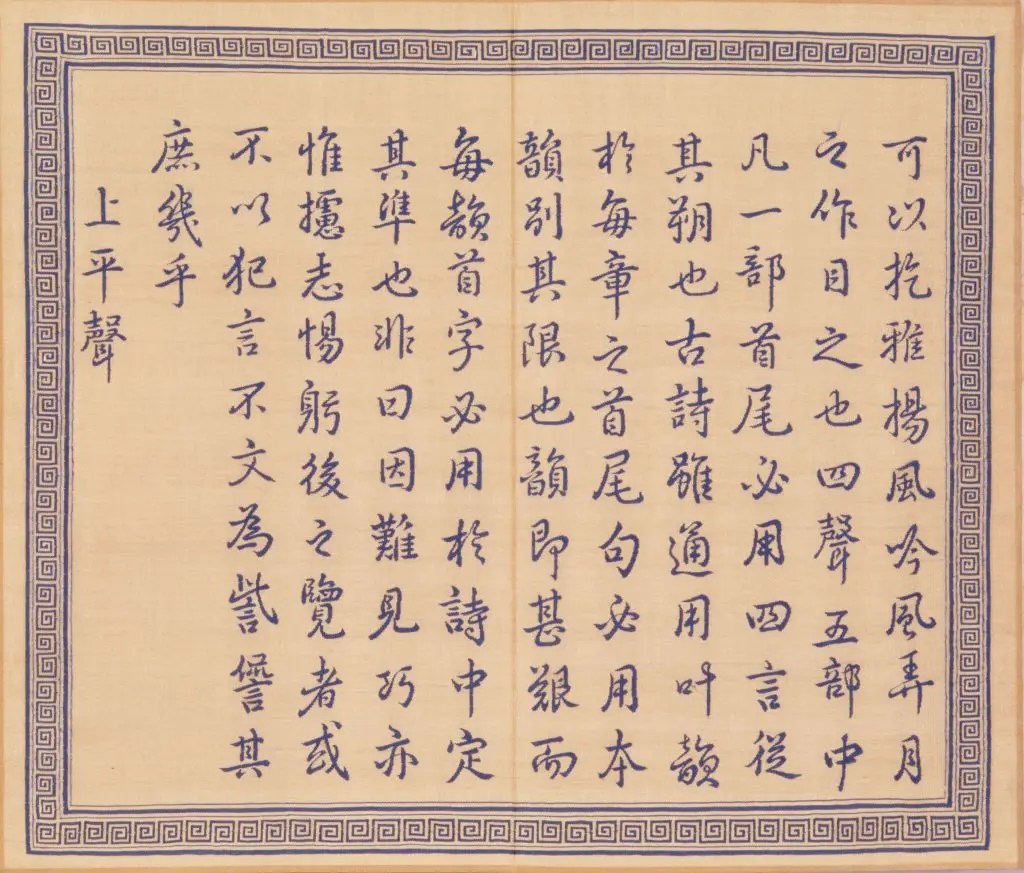 可以扢雅揚風吟風弄月
之作目之也四聲五部中
凡一部首尾必用四言從
其朔也古詩雖通用叶韻
於每章之首尾句必用本
韻別其限也韻即甚艱而
每韻首字必用於詩中定
其準也非曰因難見巧亦
惟攄志惕躬後之覽者或
不以犯言不文為訾謷其
庶幾乎
上平聲